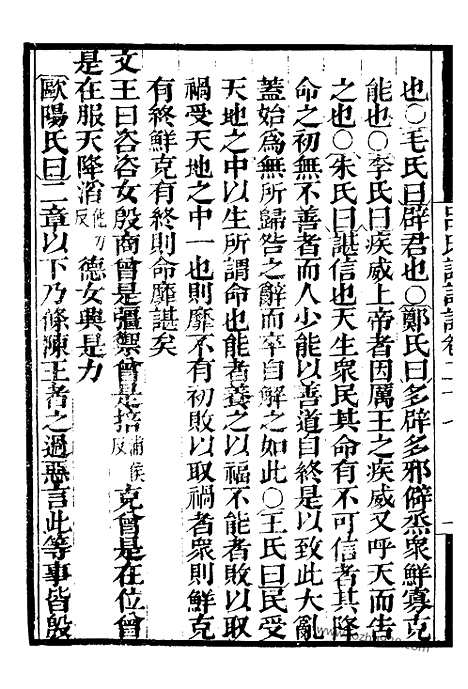 也○毛氏曰辟君也○鄭氏曰多辟多邪僻烝衆鮮寡克
能也○李氏曰疾威上帝者因厲王之疾威又呼天而告
之也○朱氏曰諶信也天生衆民其命有不可信者其降
命之初無不善者而人少能以善道自終是以致此大亂
蓋始爲無所歸咎之辭而卒自解之如此○王氏曰民受
天地之中以生所謂命也能者養之以福不能者敗以取
禍受天地之中一也則靡不有初敗以取禍者衆則鮮克
有終鮮克有終則命靡諶矣
文王曰咨咨女殷商曾是彊禦曾是掊蒲侯反克曾是在位曾
是在服天降滔他刀反德女興是力
歐陽氏曰二章以下乃條陳王者之過惡言此等事皆殷